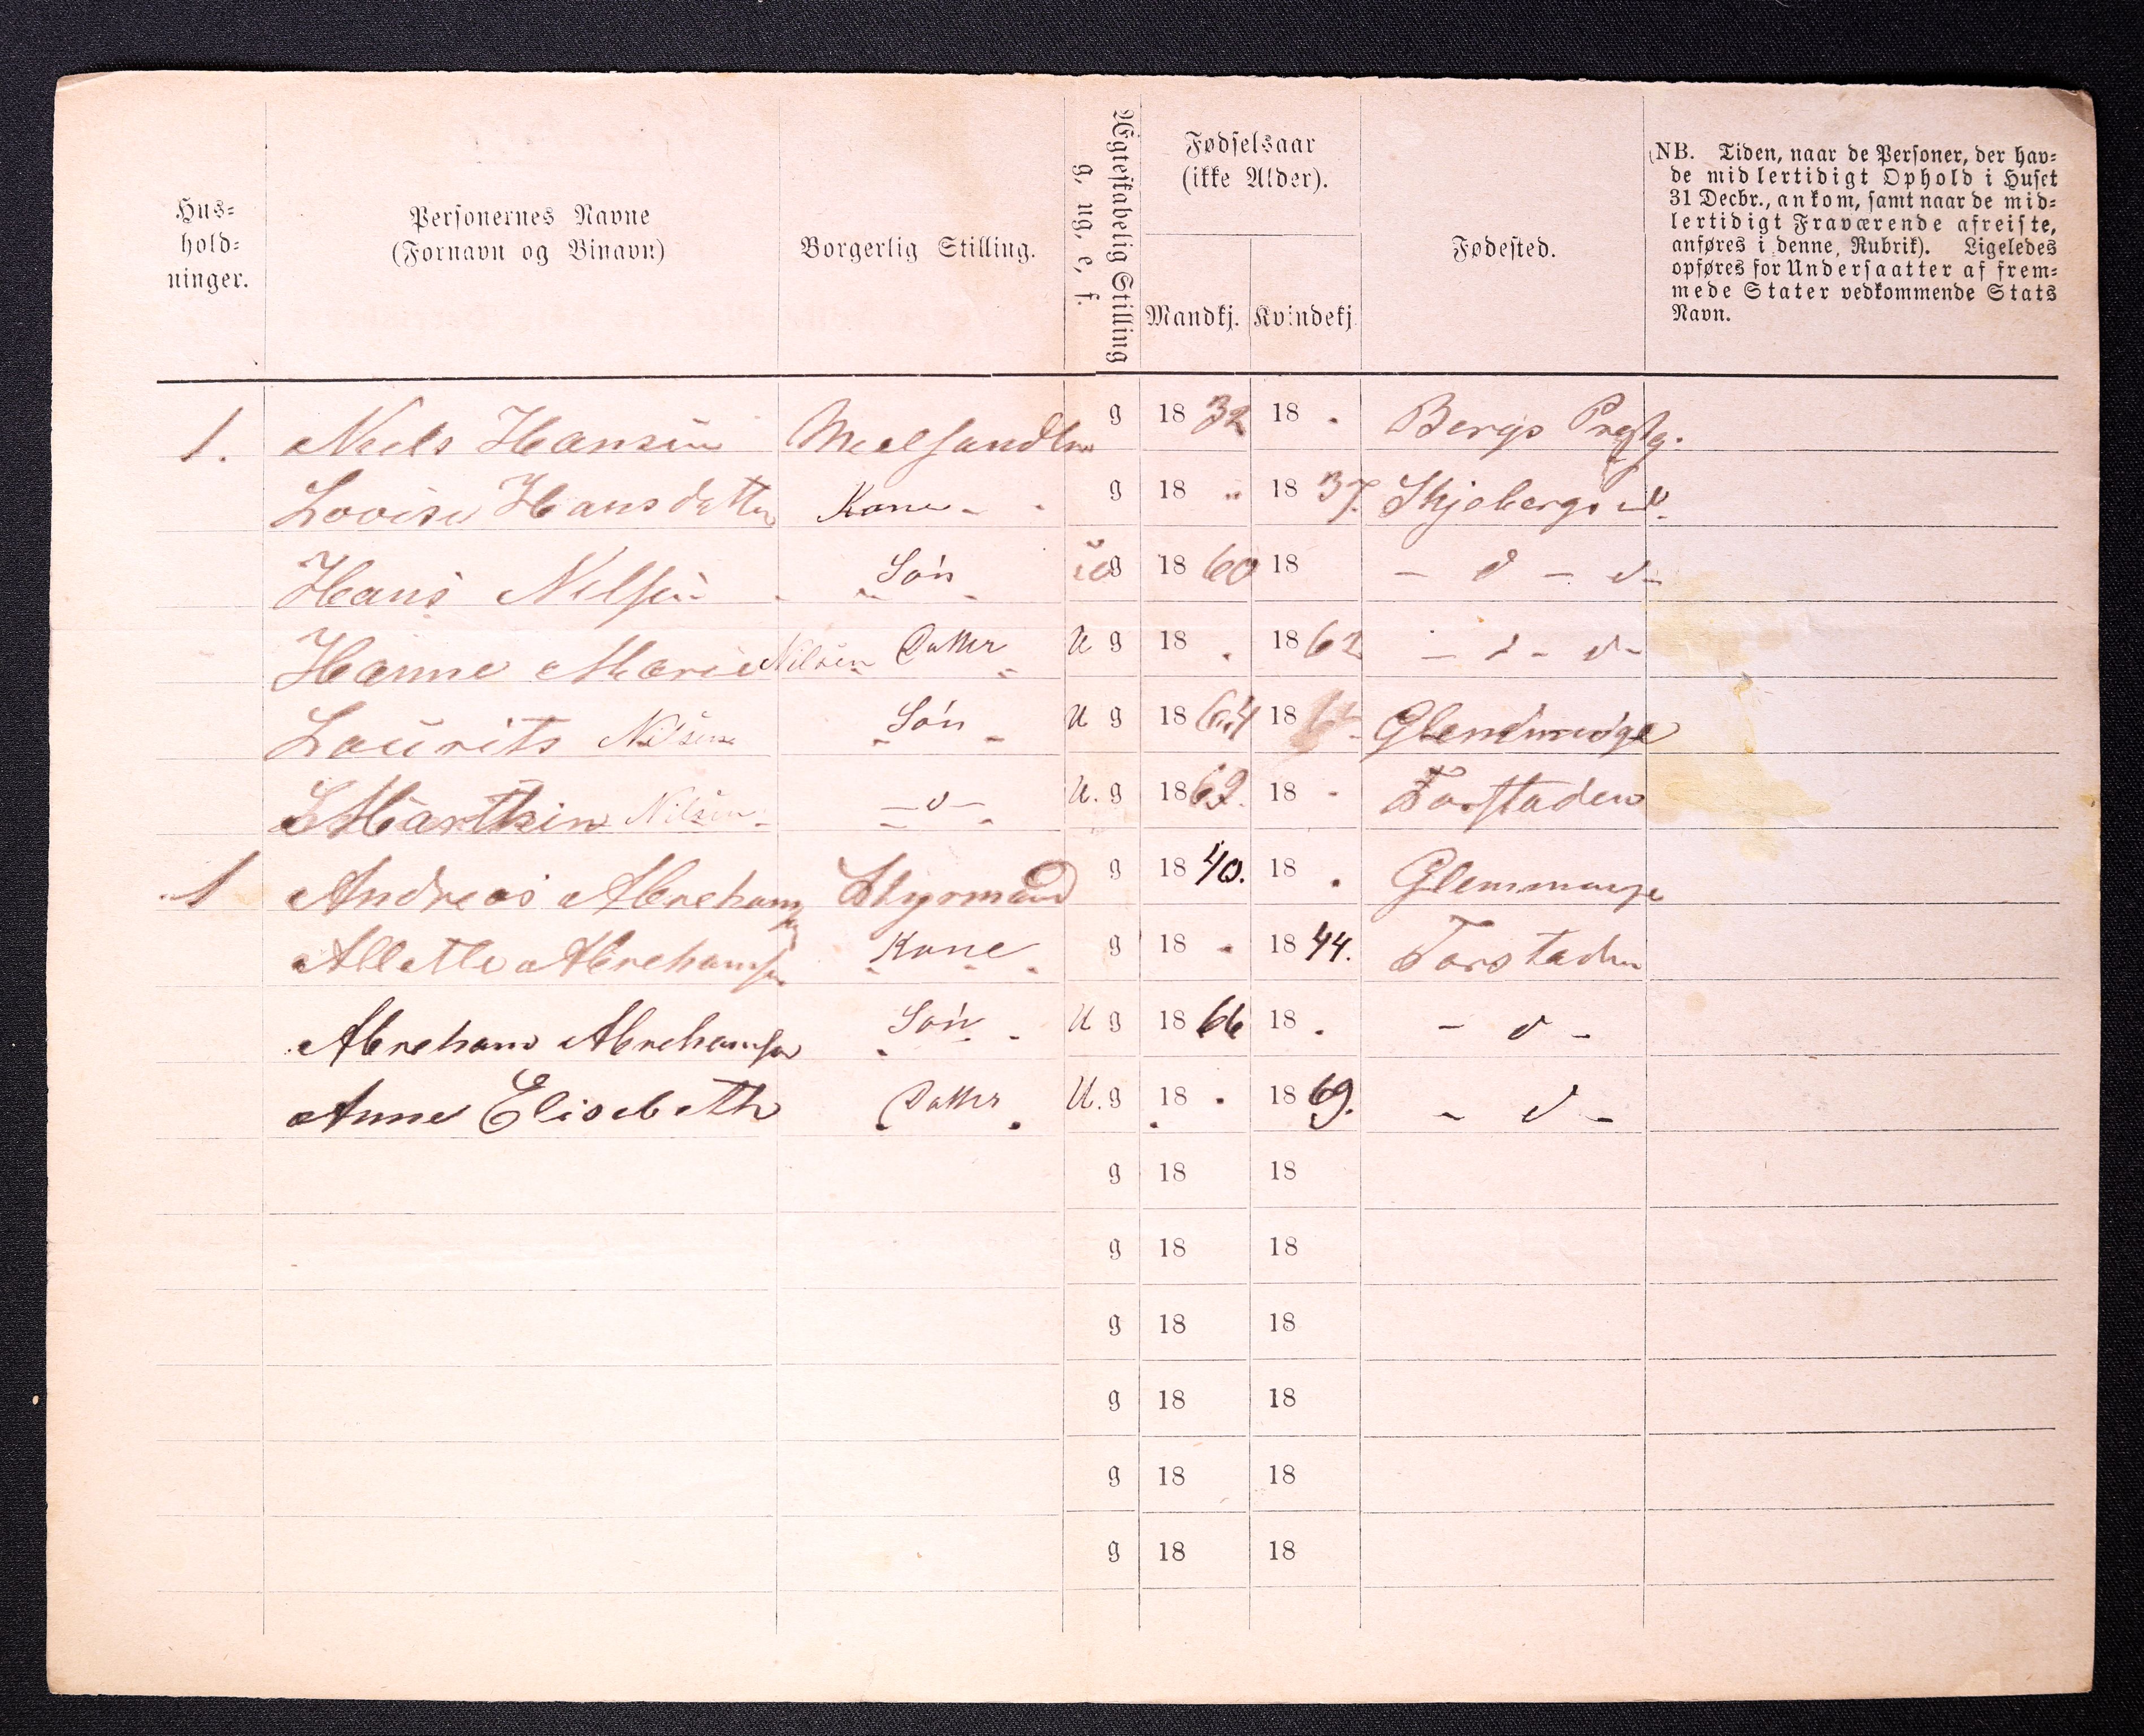 Hus-
hold-
ninger.
Personernes Navne
(Fornavn og Binavn)
Borgerlig Stilling.
Ægteskabelig Stilling
g, ug, e, f.
Fødselsaar
(ikke Alder).
Mandkj. Kvindekj
Fødested.
(NB. Tiden, naar de Personer, der hav-
de midlertidigt Ophold i Huset
31 Decbr., ankom, samt naar de mid-
lertidigt Fraværende afreiste,
anføres i denne, Rubrik). Ligeledes
opføres for Undersaatter af frem-
mede Stater vedkommende Stats
Navn.
1. Niels Hansen g 18 32 18 . Bergs Præstg.
Lovise Hansdatter Kone - g 18 " 18 37. Skjebergs
Hans Nilsen Søn ug 18 60 18 - d - d -
Hanne Marie Nilsen Datter U g 18 . 18 62 - d - d -
Laurits Nilsen Søn U g 18 64 18
Marthin Nilsen - d - U. g 18 69. 18 - Forstaden
1 Andreas Abrehamsen Styrmand g 18 40. 18 . Glemminge
Allette Abrehamsen Kone g 18 - 18 44. Forstaden
Abreham Abrehamsen Søn U g 18 66 18 . - d -
Anne Elisebeth Datter U. g 18 . 18 69. - d -
g 18 18
g 18 18
g 18 18
g 18 18
g 18 18
g 18 18